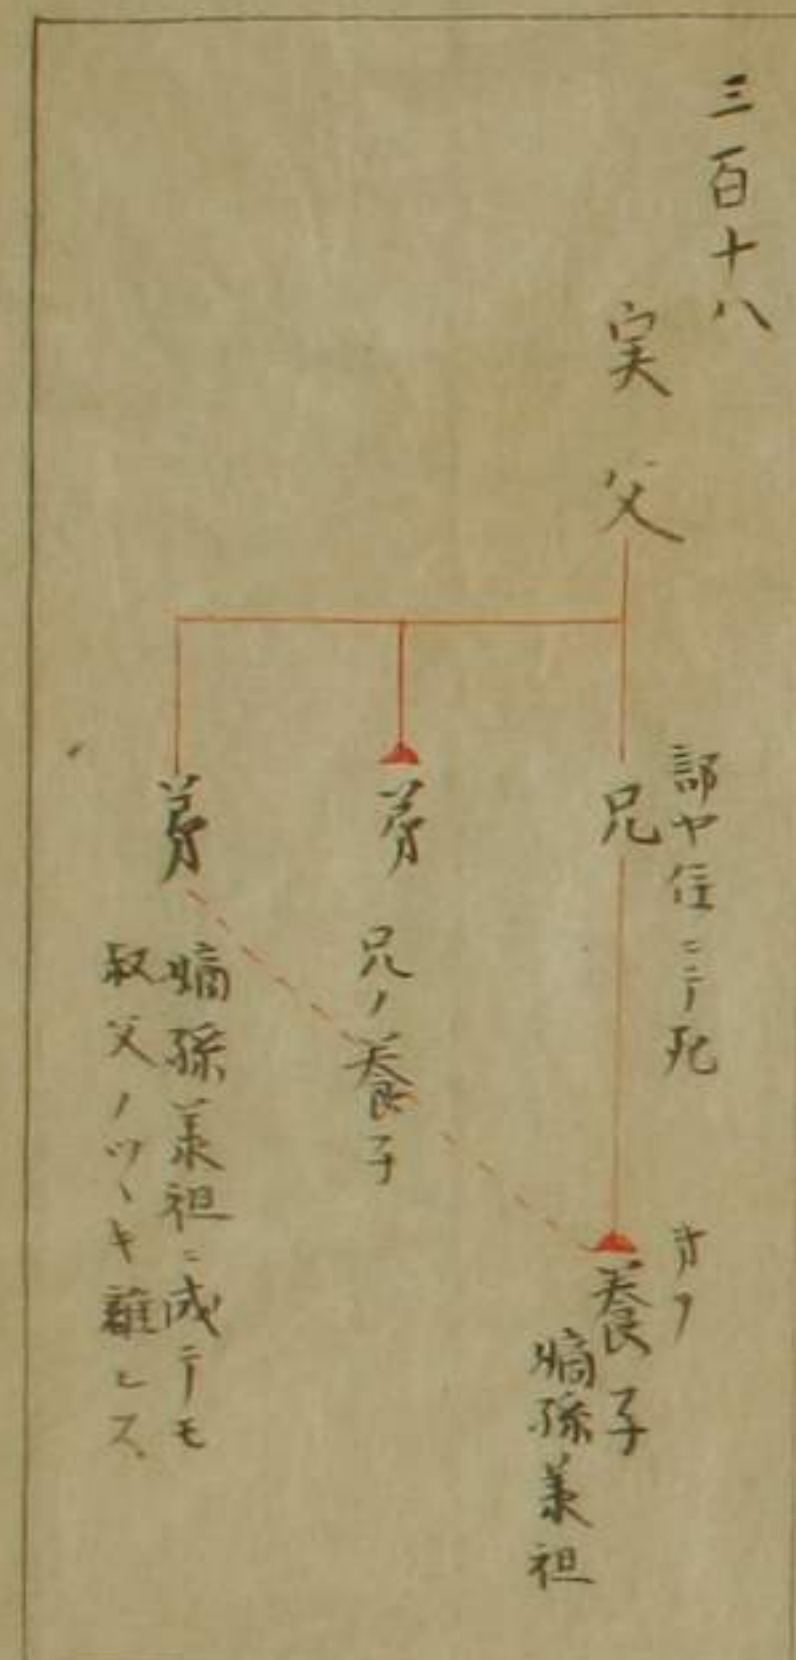 三百十八
実父
部ヤ住ニテ死
兄
弟ノ
養子
嫡孫承祖
弟
兄ノ養子
弟
嫡孫承祖ニ成テモ
叔父ノツヽキ離レス